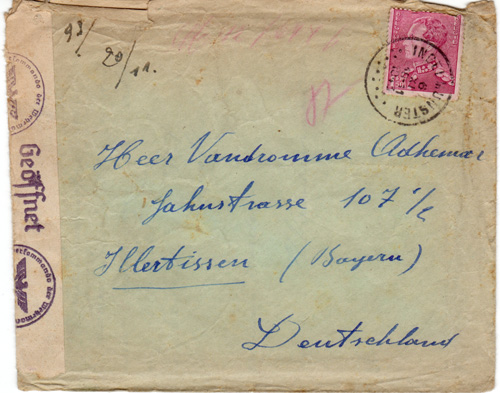 93/20/11.
INGELMUNSTER
Geöffnet
Heer Vandromme Adhemar
Jahnstrasse 107 1/2
Illertissen (Bayern)
Deutschland